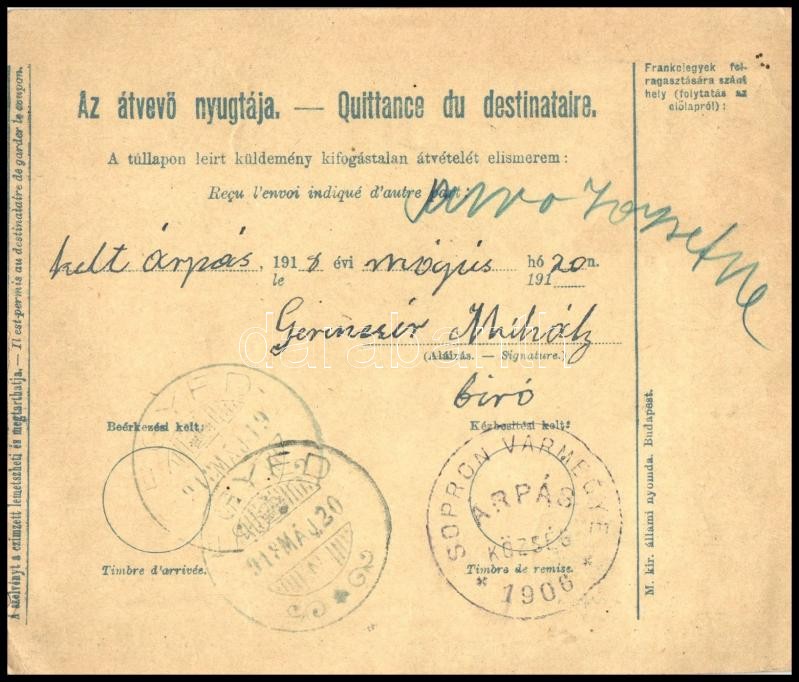 Frankojegyek fel-
ragasztására szánt
hely (folytatás az
előlapról):
Az átvevő nyugtája. — Quittance du destinataire.
A túllapon leirt küldemény kifogástalan átvételét elismerem:
Reçu l'envoi indiqué d'autre part:
kelt árpás, 1918 évi május hó 20 n.
le 191
Gerencsér Mihály
(Aláírás. — Signature.)
biró
Beérkezési kelt:
Kézbesitési kelt:
Timbre d'arrivée.
Timbre de remise.
MÁJ.19
EGYED
918 MÁJ.20
SOPRON VÁRMEGYE
ÁRPÁS
KÖZSÉG
* 1906 *
A szelvényt a czimzett lemetszheti és megtarthatja. — Il est permis au destinataire de garder le coupon.
M. kir. állami nyomda. Budapest.
darabanth